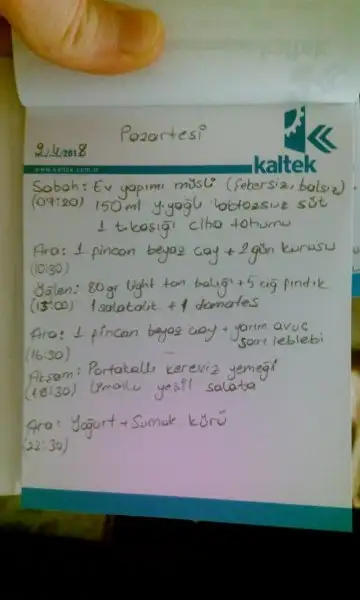 Pazartesi
2.4.2018
kaltek
www.kaltek.com.tr
Sabah: Ev yapımı müsli (şekersiz, balsız)
(09:20) 150 ml y.yağlı laktozsuz süt
1 t.kaşığı chia tohumu
Ara: 1 fincan beyaz çay + 2 gün kurusu
(10:30)
Öğlen: 80 gr light ton balığı + 5 çiğ fındık
(13:00) 1 salatalık + 1 domates
Ara: 1 fincan beyaz çay + yarım avuç
(16:30) sarı leblebi
Akşam: Portakallı kereviz yemeği
(18:30) Limonlu yeşil salata
Ara: Yoğurt + Sumak kürü
(22:30)